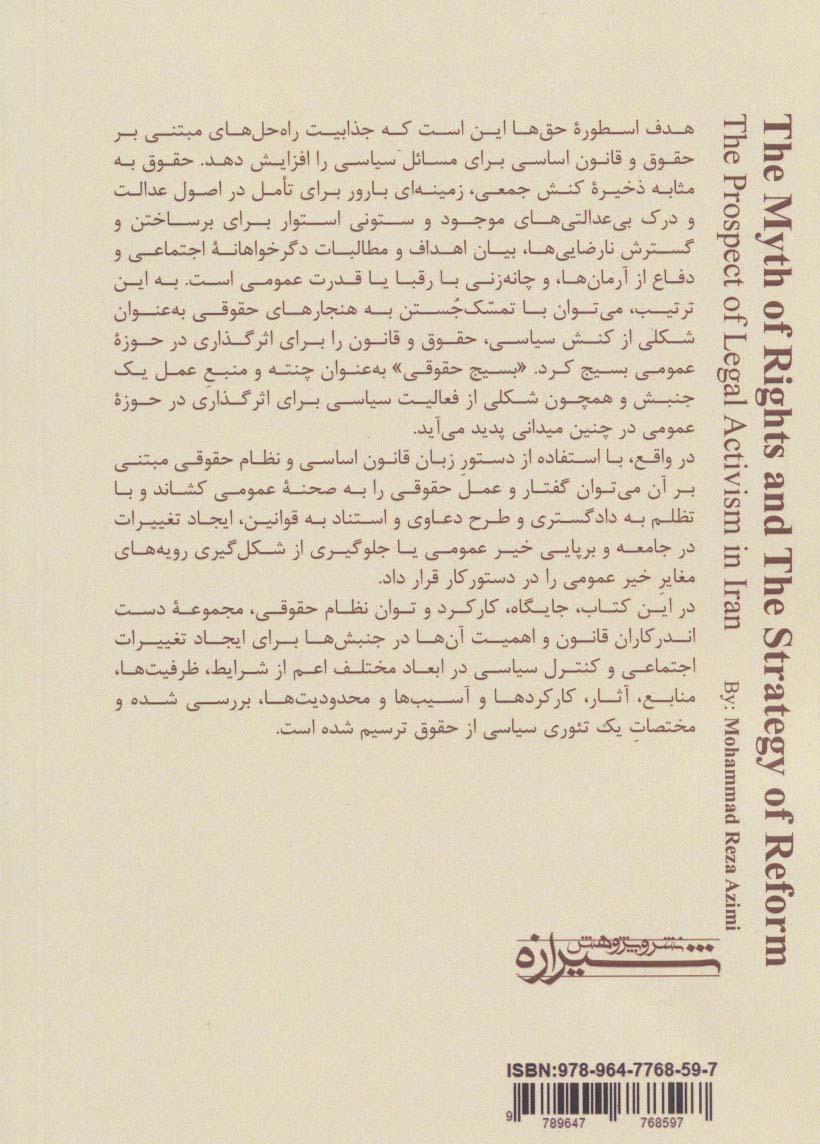 The Myth of Rights and The Strategy of Reform
The Prospect of Legal Activism in Iran
By: Mohammad Reza Azimi
هدف اسطورهٔ حق‌ها این است که جذابیت راه‌حل‌های مبتنی بر
حقوق و قانون اساسی برای مسائل سیاسی را افزایش دهد. حقوق به
مثابه ذخیرهٔ کنش جمعی، زمینه‌ای بارور برای تأمل در اصول عدالت
و درک بی‌عدالتی‌های موجود و ستونی استوار برای برساختن و
گسترش نارضایی‌ها، بیان اهداف و مطالبات دگرخواهانهٔ اجتماعی و
دفاع از آرمان‌ها، و چانه‌زنی با رقبا یا قدرت عمومی است. به این
ترتیب، می‌توان با تمسّک‌جُستن به هنجارهای حقوقی به‌عنوان
شکلی از کنش سیاسی، حقوق و قانون را برای اثرگذاری در حوزهٔ
عمومی بسیج کرد. «بسیج حقوقی» به‌عنوان چنته و منبعِ عمل یک
جنبش و همچون شکلی از فعالیت سیاسی برای اثرگذاری در حوزهٔ
عمومی در چنین میدانی پدید می‌آید.
در واقع، با استفاده از دستورِ زبان قانون اساسی و نظام حقوقی مبتنی
بر آن می‌توان گفتار و عملِ حقوقی را به صحنهٔ عمومی کشاند و با
تظلم به دادگستری و طرح دعاوی و استناد به قوانین، ایجاد تغییرات
در جامعه و برپایی خیر عمومی یا جلوگیری از شکل‌گیری رویه‌های
مغایرِ خیر عمومی را در دستورکار قرار داد.
در این کتاب، جایگاه، کارکرد و توان نظام حقوقی، مجموعهٔ دست
اندرکاران قانون و اهمیت آن‌ها در جنبش‌ها برای ایجاد تغییرات
اجتماعی و کنترل سیاسی در ابعاد مختلف اعم از شرایط، ظرفیت‌ها،
منابع، آثار، کارکردها و آسیب‌ها و محدودیت‌ها، بررسی شده و
مختصاتِ یک تئوری سیاسی از حقوق ترسیم شده است.
نشر و پژوهش
شیرازه
ISBN:978-964-7768-59-7
9 789647 768597